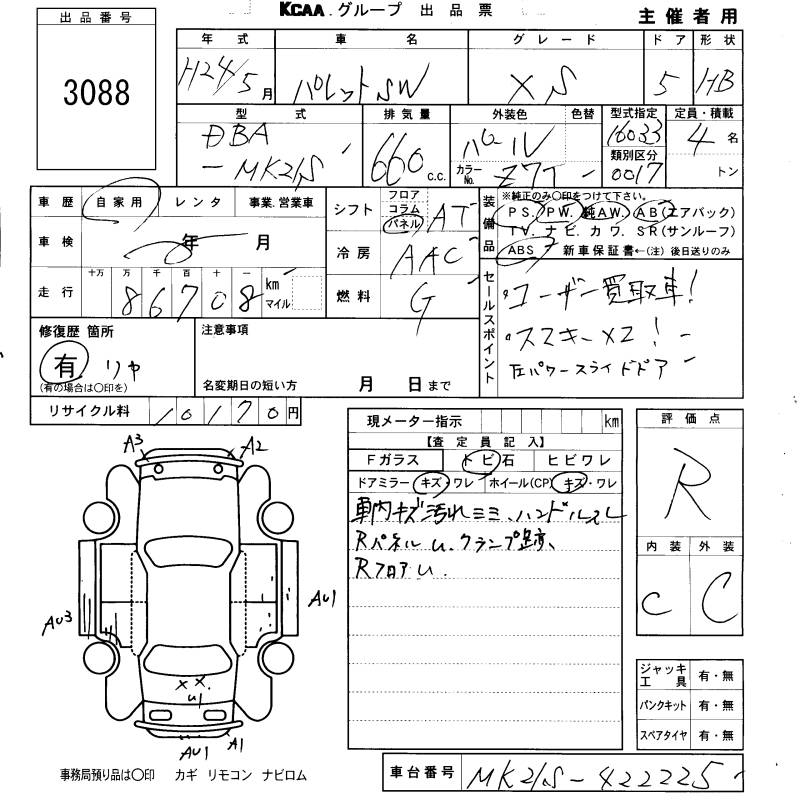 KCAA.グループ 出品票
主催者用
出品番号
3088
年式 車名 グレード ドア 形状
H24/5月 パレットSW XS 5 HB
型式 排気量 外装色 色替 型式指定 定員・積載
DBA 660 c.c. パール 16033 4名
-MK21S カラーNo. Z7T 類別区分 0017 トン
車歴 自家用 レンタ 事業.営業車
車検 年 月
走行 十万 万 千 百 十 一
86708 km マイル
シフト フロア コラム パネル AT
冷房 AAC
燃料 G
装備品 ※純正のみ〇印をつけて下さい。
PS. PW. 純AW. AB(エアバック)
TV. ナビ. カワ. SR(サンルーフ)
ABS 新車保証書←(注) 後日送りのみ
セールスポイント
・ユーザー買取車!
・スマキー×2!
左パワースライドドア
修復歴 箇所
有 リヤ
(有の場合は〇印を)
注意事項
名変期日の短い方 月 日まで
リサイクル料 10170円
現メーター指示 km
【査定員記入】
Fガラス トビ石 ヒビワレ
ドアミラー キズ・ワレ ホイール(CP) キズ・ワレ
車内キズ汚れミミ、ハンドルスレ
Rパネルu.クランプ跡、
RフロアU.
評価点
R
内装 外装
C C
A3 A2
AU3 AU1
××.
U1
AU1 A1
ジャッキ工具 有・無
パンクキット 有・無
スペアタイヤ 有・無
事務局預り品は〇印 カギ リモコン ナビロム
車台番号 MK21S-422225